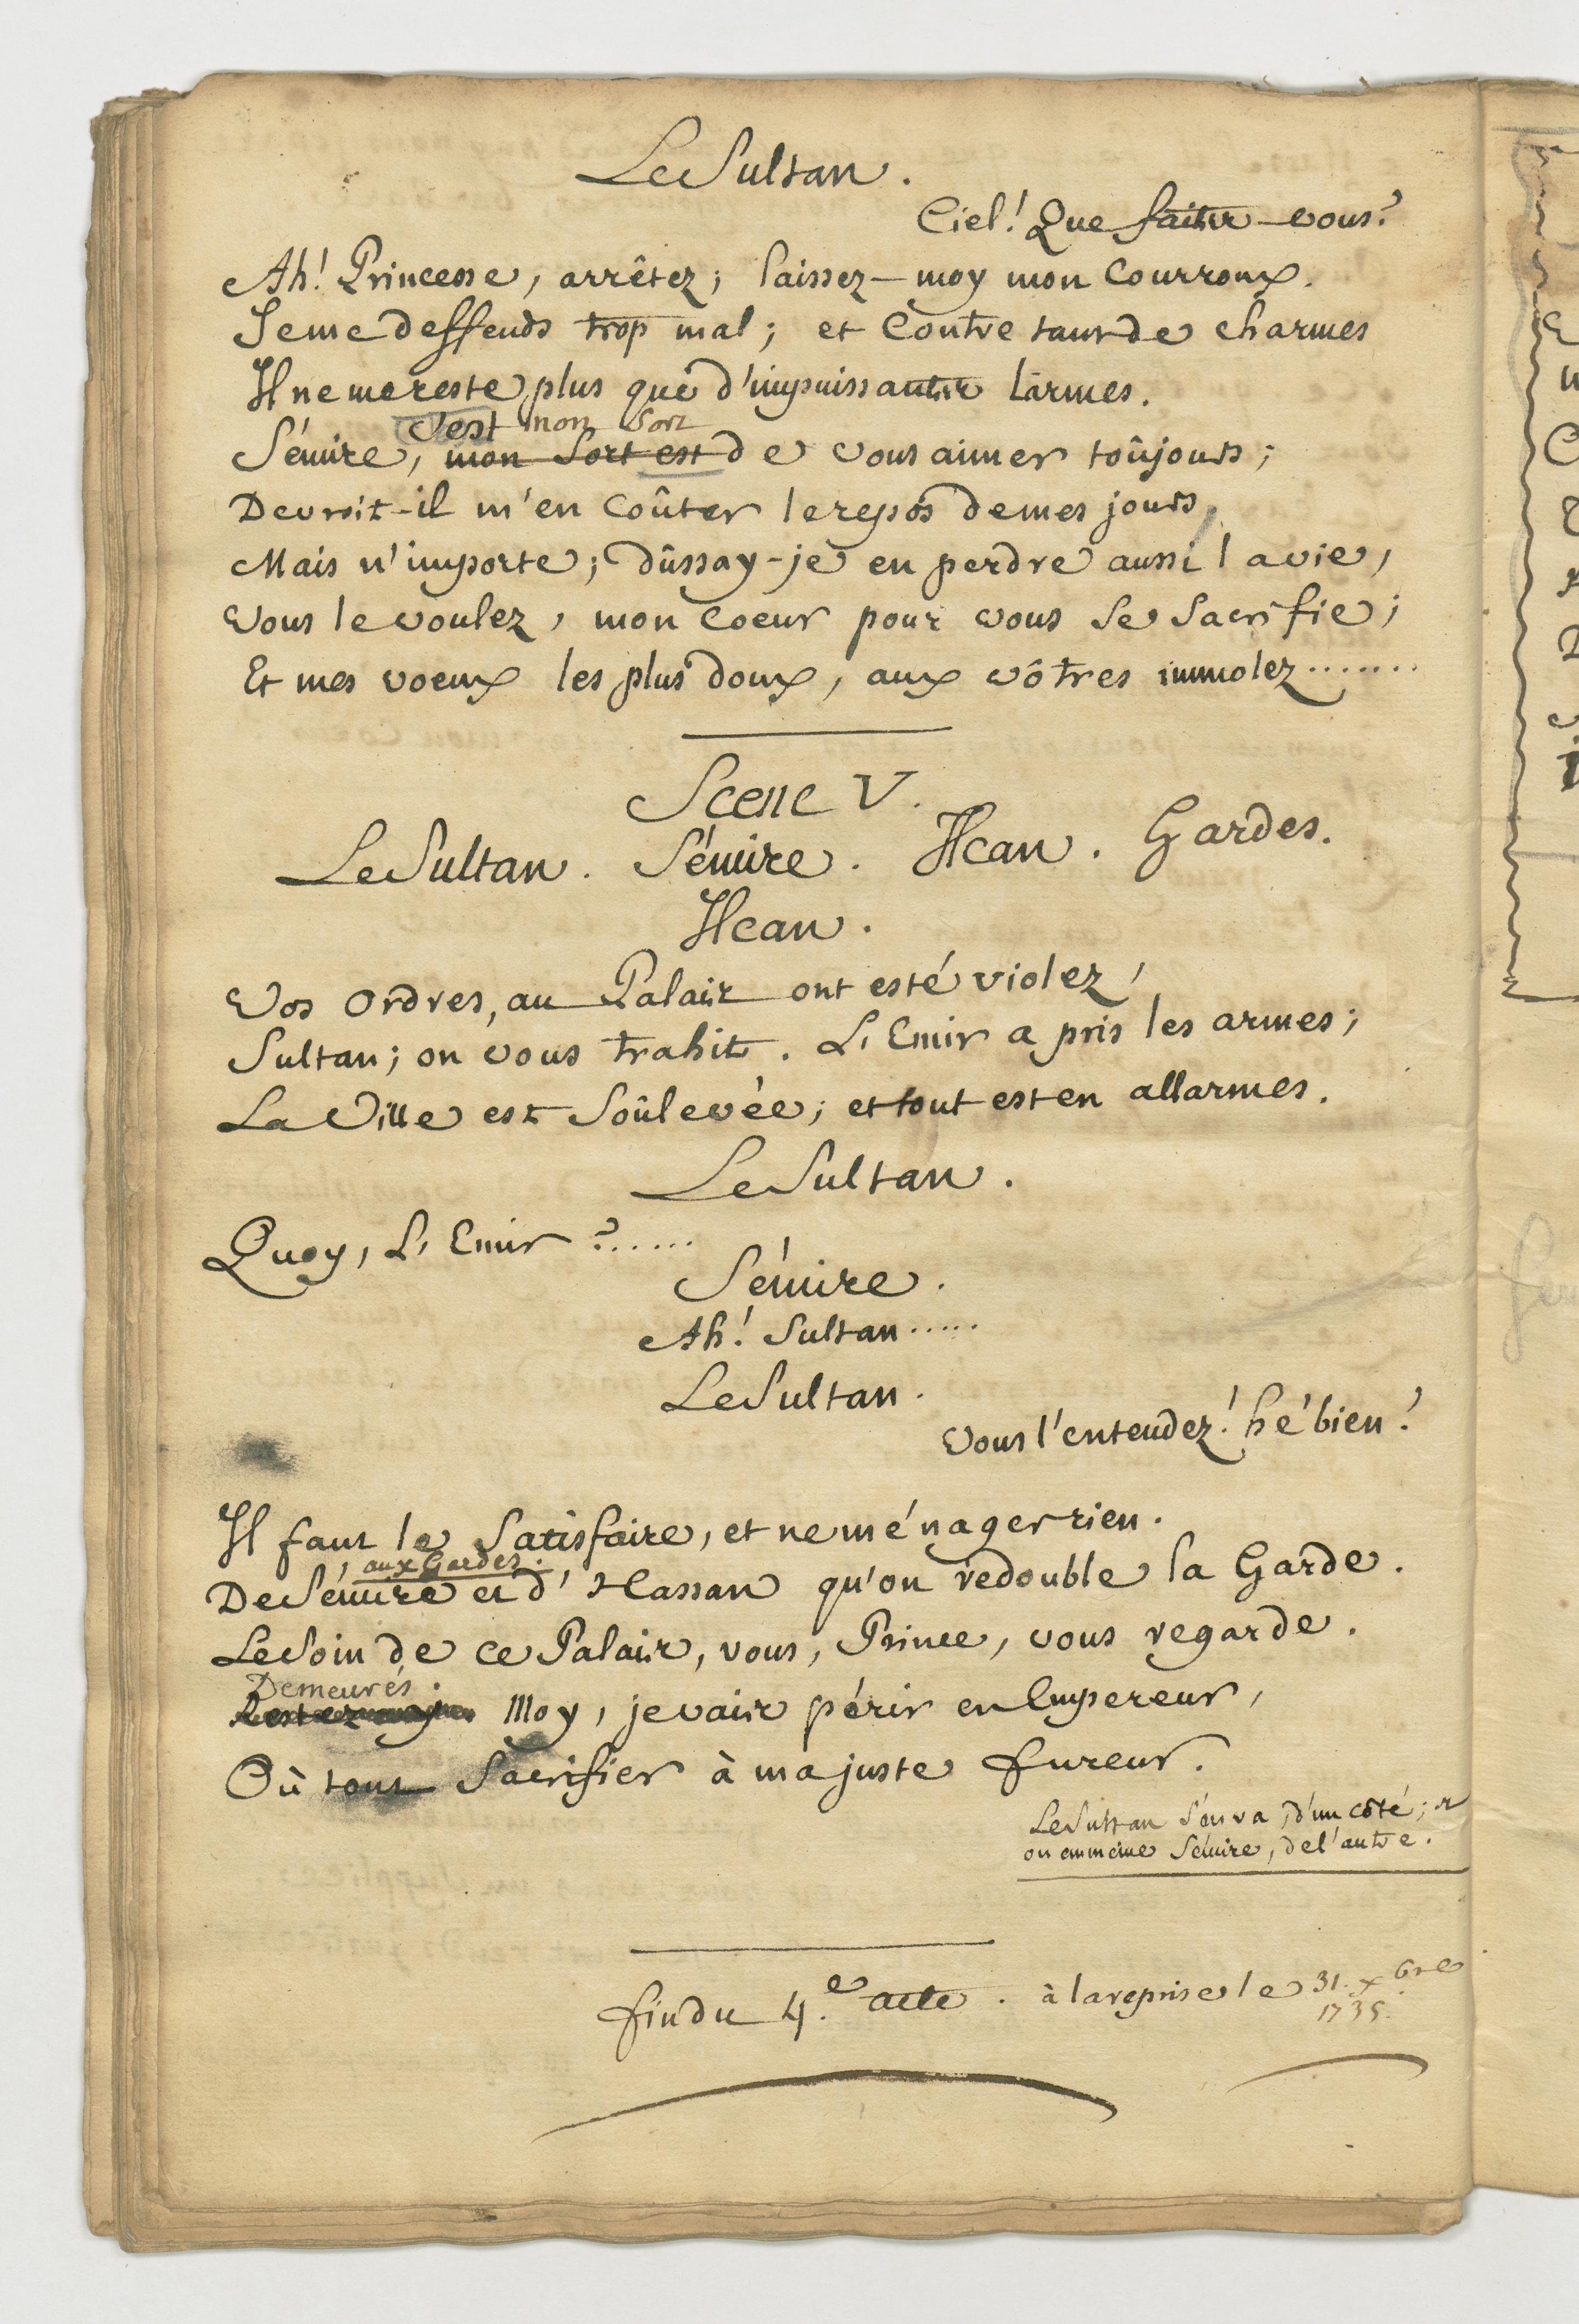 Le Sultan.
Ciel! Que faites-vous?
Ah! Princesse, arrêtez; laissez-moy mon Courroux.
Je me deffends trop mal; et Contre tant de charmes
Il ne me reste plus que d'impuissantes larmes.
C'est mon Sort
Sémire, mon Sort est de vous aimer toûjours;
Devroit-il m'en Coûter le repos de mes jours,
Mais n'importe; dûssay-je en perdre aussi la vie,
Vous le voulez, mon Coeur pour vous Se Sacrifie;
Et mes voeux les plus doux, aux vôtres immolez.......
Scene V.
Le Sultan. Sémire. Ilcan. Gardes.
Ilcan.
Vos Ordres, au Palais ont esté violez,
Sultan; on vous trahit. L'Emir a pris les armes;
La Ville est Soûlevée; et tout est en allarmes.
Le Sultan.
Quoy, L'Emir?......
Sémire.
Ah! Sultan.....
Le Sultan.
Vous l'entendez! hé bien!
Il faut le Satisfaire, et ne ménager rien.
aux Gardes.
De Sémire et d'Hassan qu'on redouble la Garde.
Le Soin de ce Palais, vous, Prince, vous regarde.
Demeurés.
Restez Moy, je vais périr en Empereur,
Où tout Sacrifier à ma juste fureur.
Le Sultan S'en va, d'un côté; et
on emmeine Sémire, de l'autre.
fin du 4.e acte. à la reprise le 31. xbre
1735.